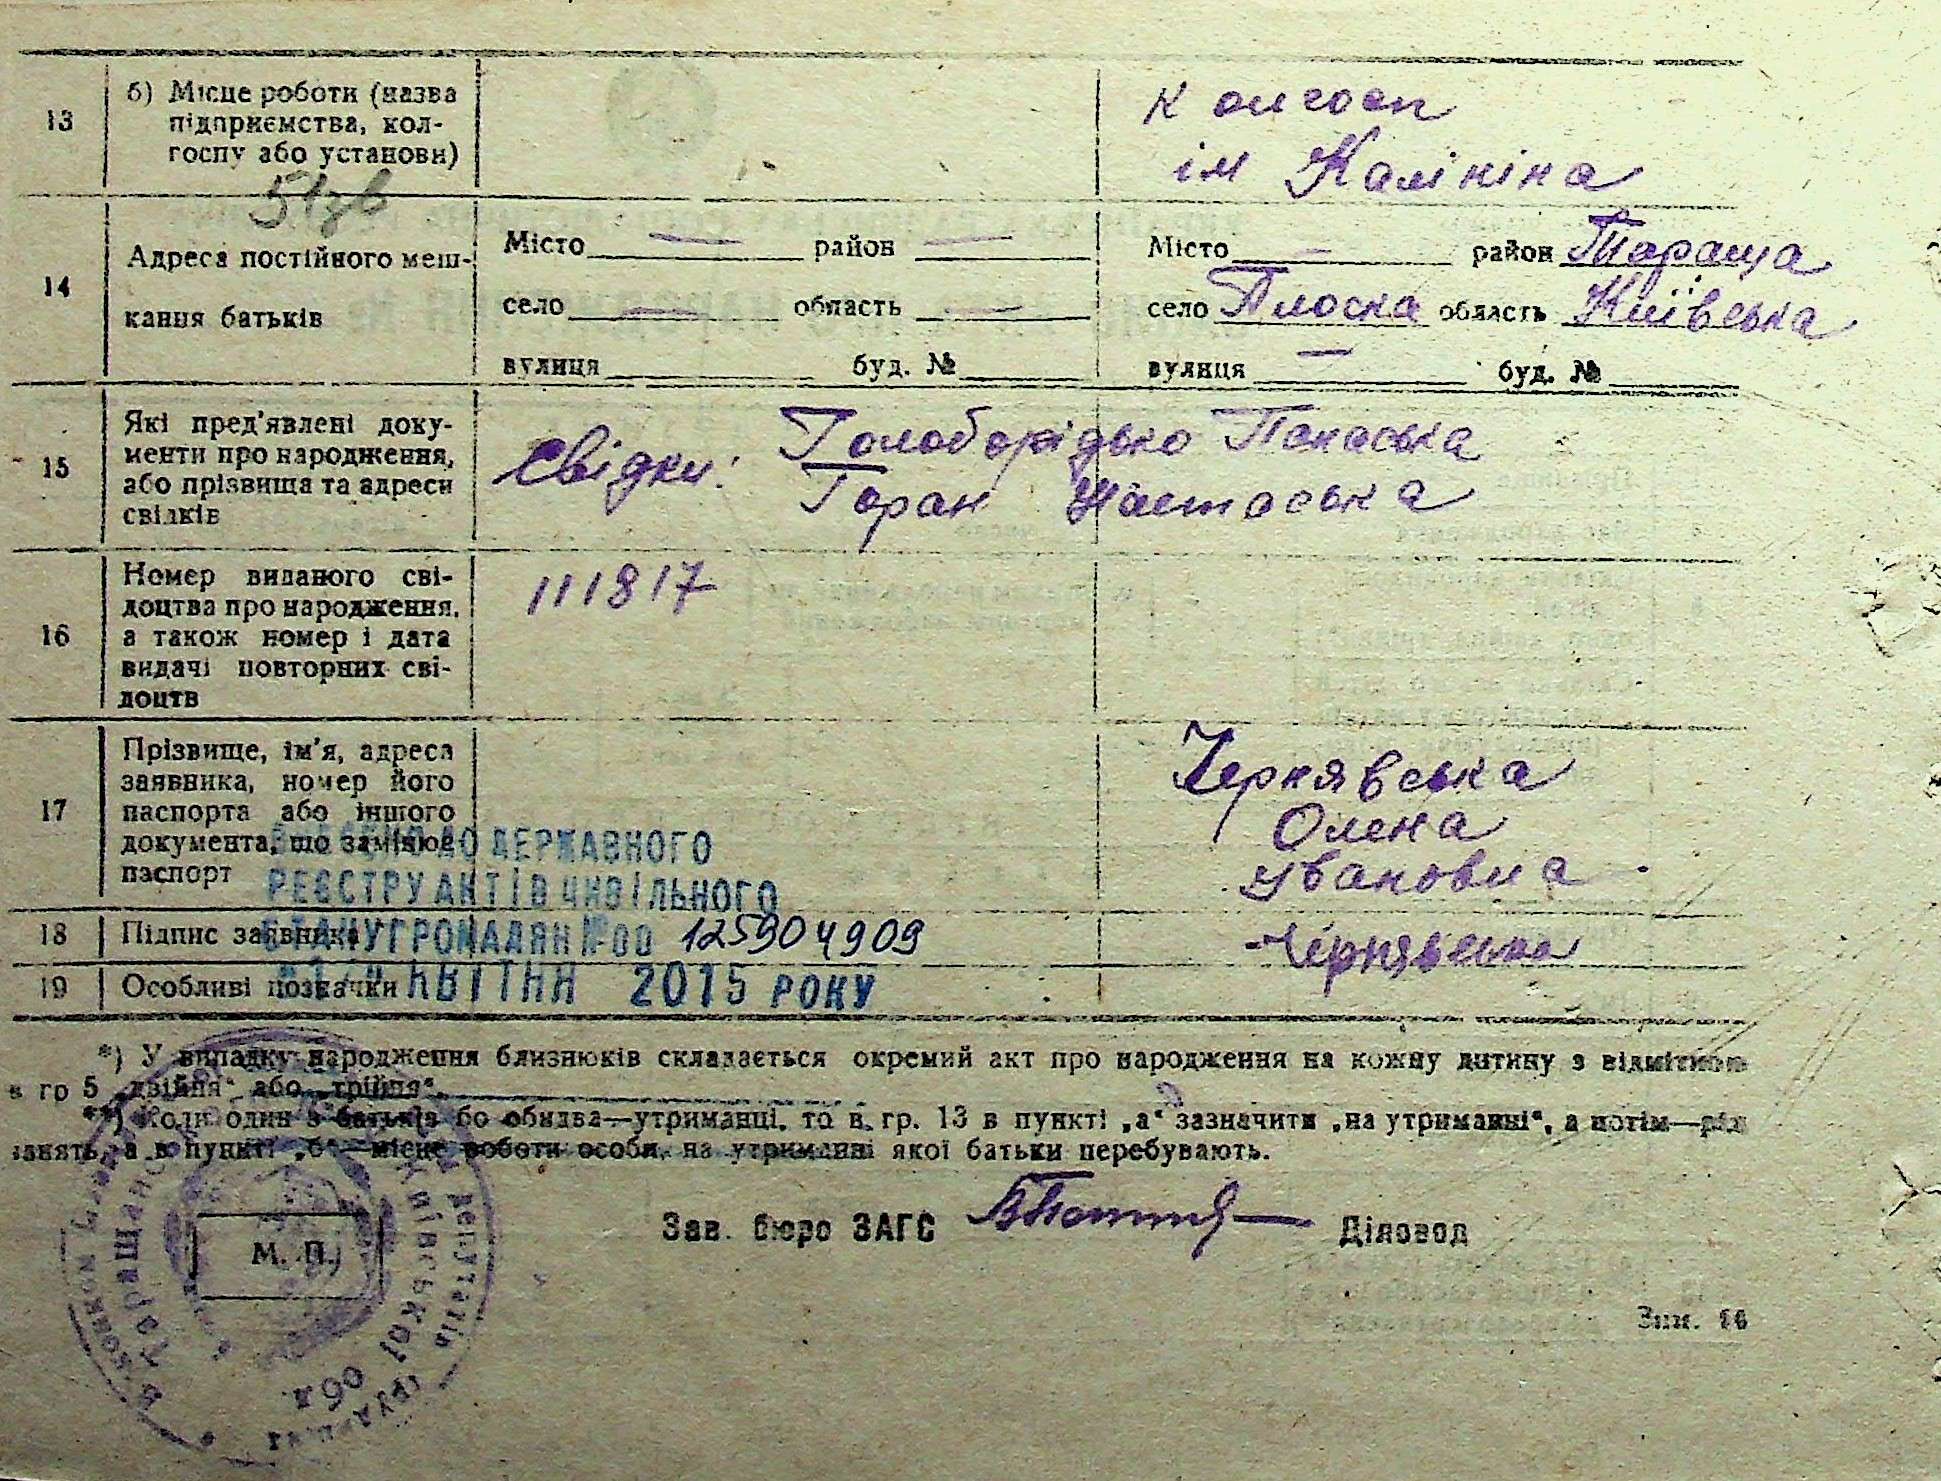 13
б) Місце роботи (назва
підприємства, кол-
госпу або установи)
колгосп
ім Калініна
14
Адреса постійного меш-
кання батьків
Місто — район —
село — область —
вулиця буд. №
Місто — район Тараща
село Плоска область Київська
вулиця — буд. №
15
Які пред'явлені доку-
менти про народження,
або прізвища та адреси
свідків
Свідки: Голоборідько Панаська
Горан Настаська
16
Номер виданого сві-
доцтва про народження,
а також номер і дата
видачі повторних сві-
доцтв
111817
17
Прізвище, ім'я, адреса
заявника, номер його
паспорта або іншого
документа, що замінює
паспорт
Чернявська
Олена
Івановна
ДО ДЕРЖАВНОГО
РЕЄСТРУ АКТІВ ЦИВІЛЬНОГО
СТАНУ ГРОМАДЯН № 00 125904909
КВІТНЯ 2015 РОКУ
18 Підпис заявника
Чернявська
19 Особливі позначки
*) У випадку народження близнюків складається окремий акт про народження на кожну дитину з відміткою
в гр 5 „двійня“ або „трійня“.
**) Коли один з батьків бо обидва—утриманці, то в гр. 13 в пункті „а“ зазначити „на утриманні“, а потім—рід
занять, а в пункті „б“—місце роботи особи, на утриманні якої батьки перебувають.
Зав. бюро ЗАГС Діловод
М. П.
Таращан
Київської обл
депутатів
Зим. 16